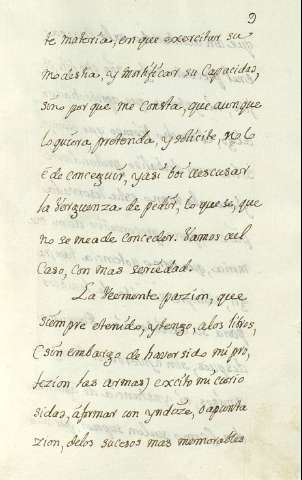 9
te materia, en que exercitar su
modestia, y mortificar su Capacidad,
sino porque me Consta, que aunque
lo quiera, pretenda, y solicite, no lo
é de conceguir, y asi boi à escusar
la Verguenza de pedir, lo que sé, que
no se me a de conceder. Vamos al
Caso, con mas seriedad.
La Veemente pazion, que
siempre é tenido, y tengo, a los libros,
(sin embargo de haver sido mi pro,
fezion las armas) excitó mi curio
sidad, á firmar con yndize, o apunta
zion, de los sucesos mas memorables